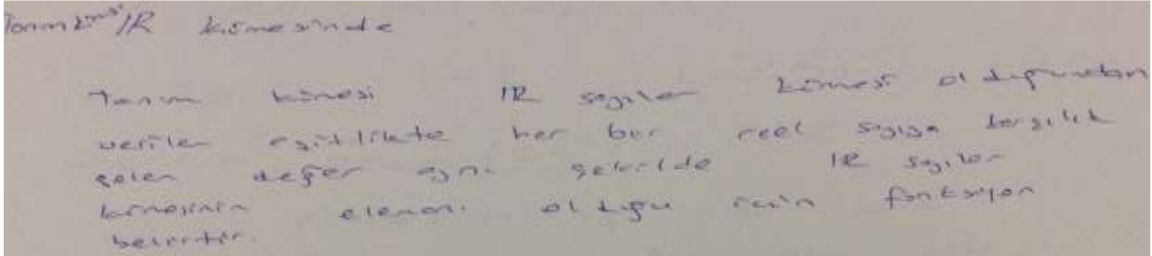 Tanım kümesi IR kümesinde
Tanım kümesi IR sayılar kümesi olduğundan
verilen eşitlikte her bir reel sayıya karşılık
gelen değer aynı şekilde IR sayılar
kümesinin elemanı olduğu için fonksiyon
belirtir.